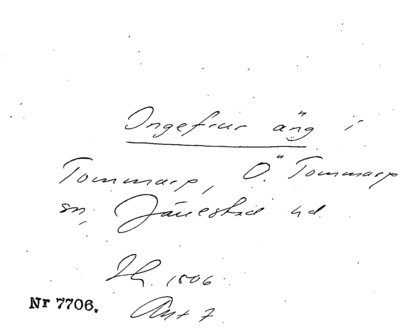 Ingefrur äng i
Tommarp, Ö. Tommarp
sn, Järrestad hd.
Lh. 1806
Nr 7706. Akt 7